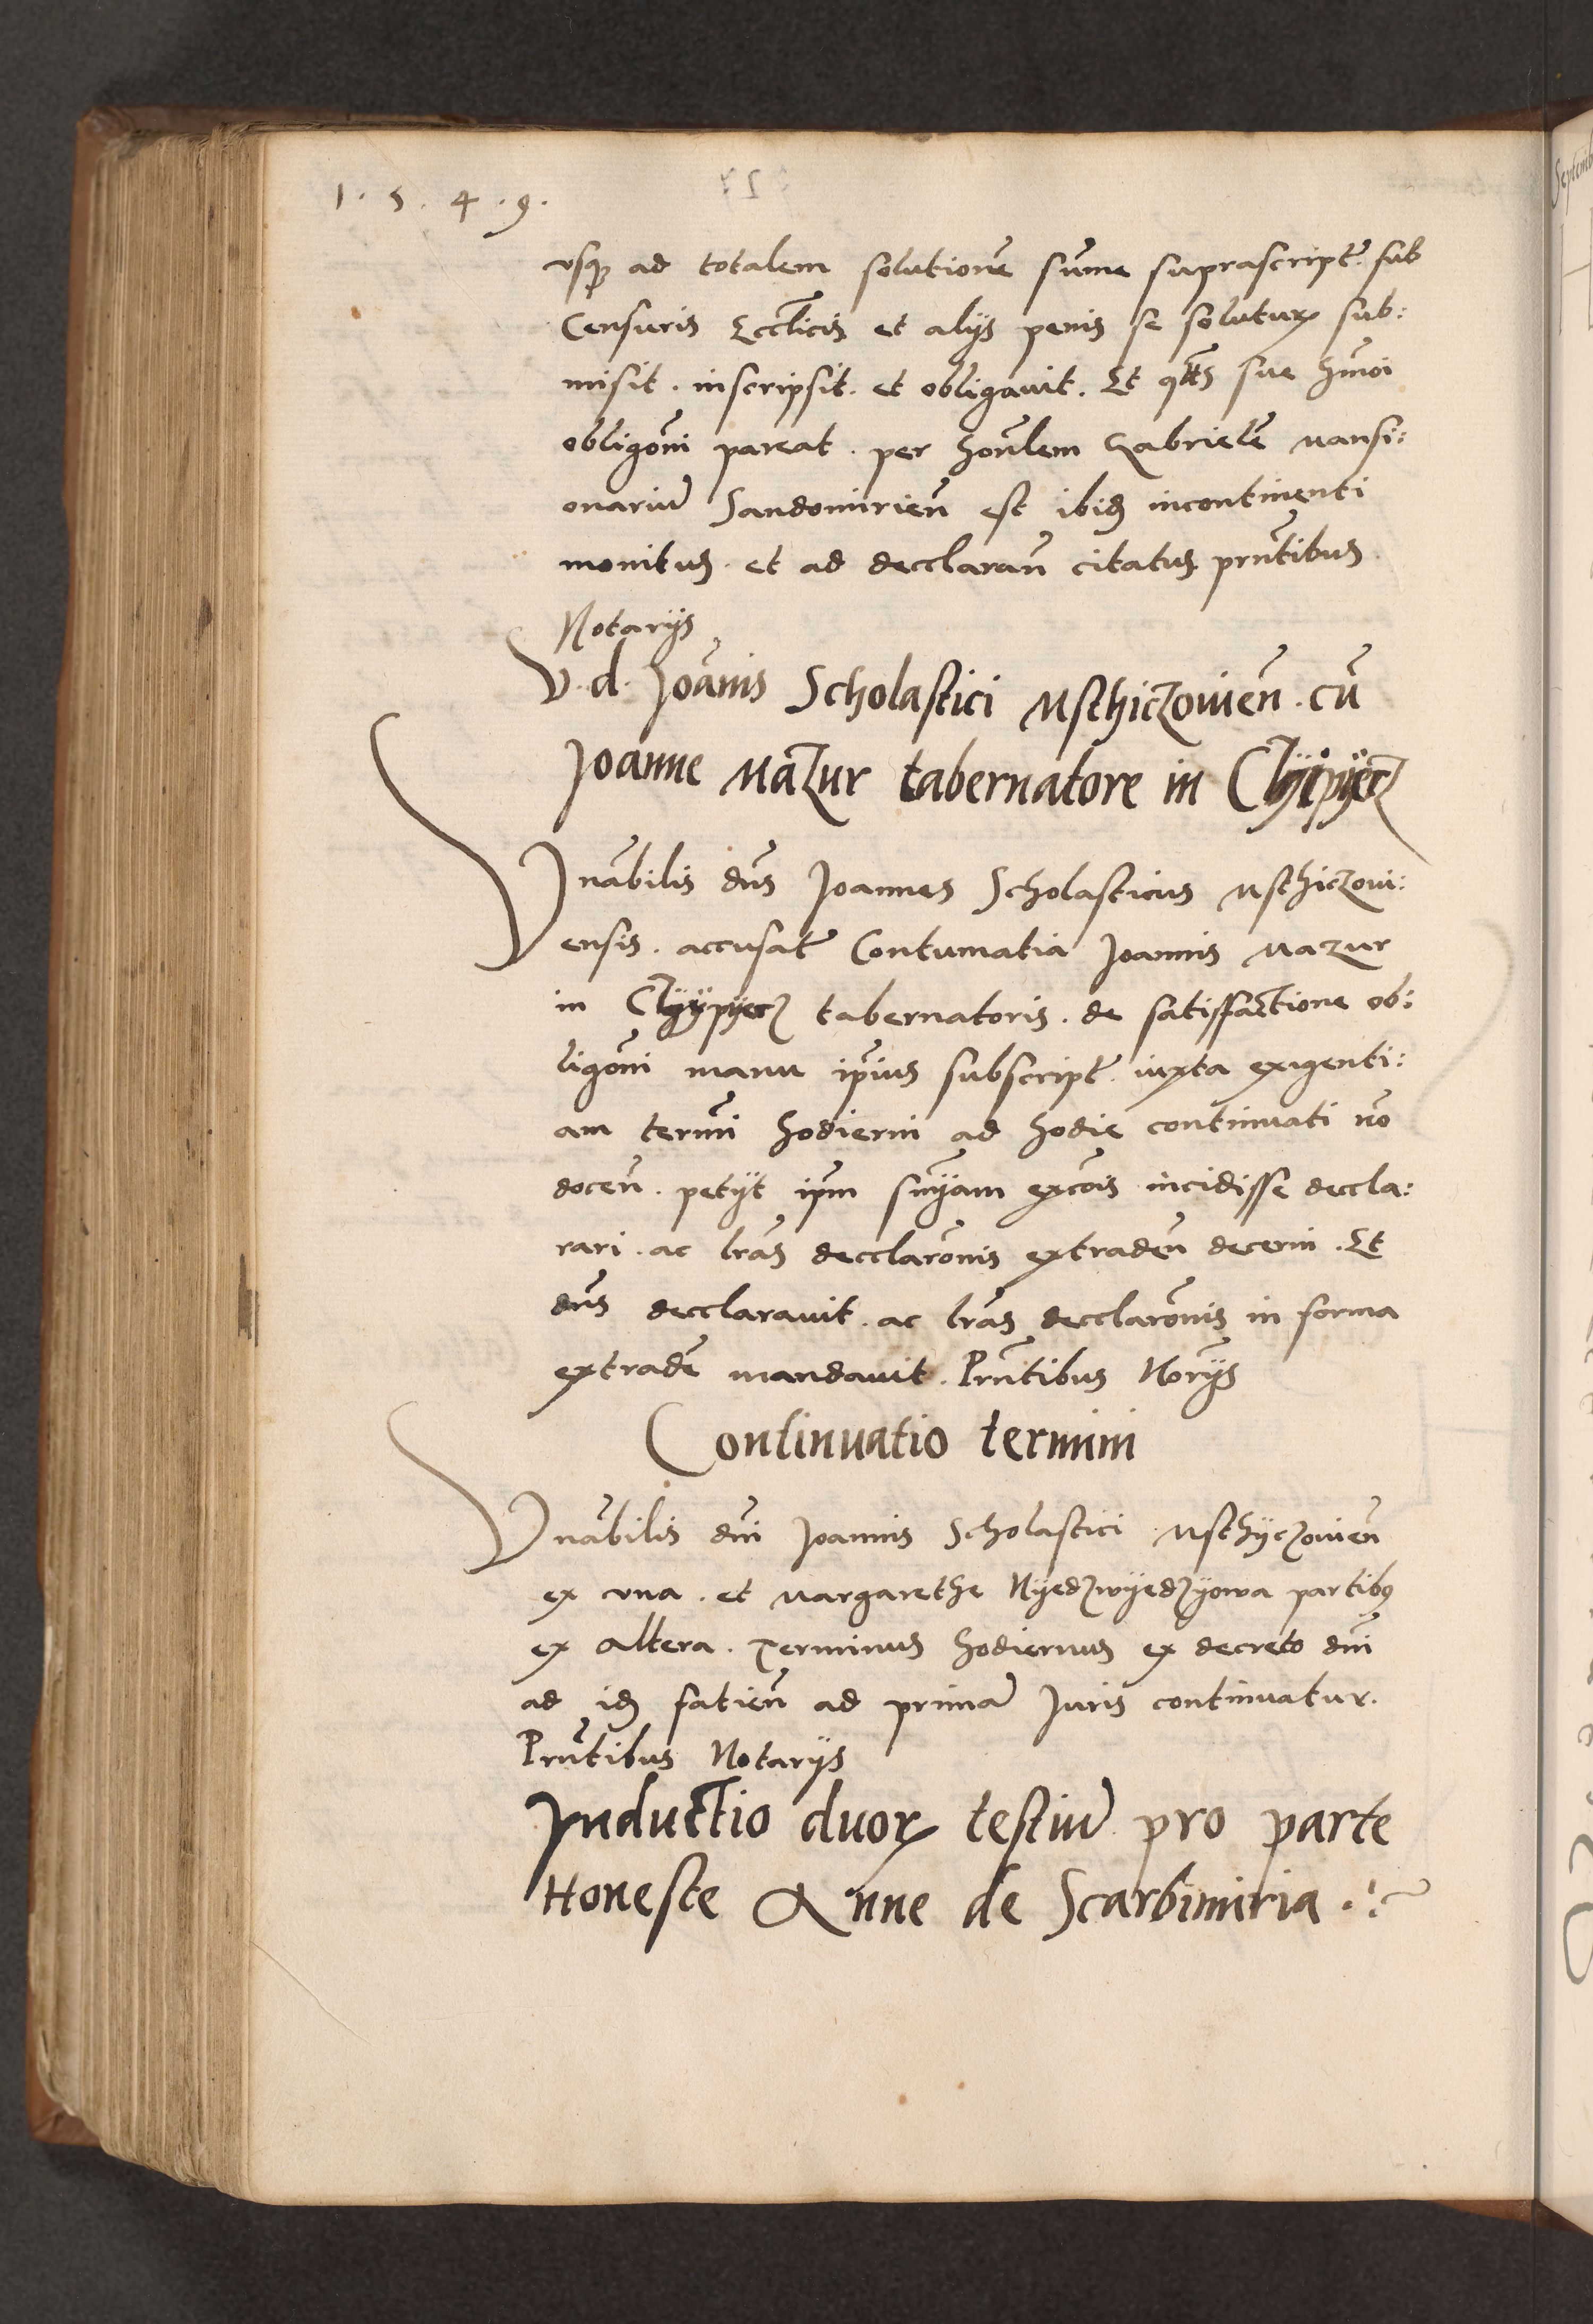 1 . 5 . 4 . 9 .
vsq₃ ad totalem solutionē sūme suprascript̄ sub
Censuris Eccl̄icis et alijs penis se solutuꝝ sub:
misit . inscripsit . et obligauit . Et sue hm̄oi
obligōni pareat . per hon̄lem Gabrielē Mansi:
onariū Sandomirien̄ est ibid₃ incontinenti
monitus . et ad decclaran̄ citatus prn̄tibus
Notarijs
V . d . Joānis Scholastici Misthiczouien̄ . cū
Joanne Mazur tabernatore in
Vnābilis dn̄s Joannes Scholasticus Misthiczoui:
ensis . accusat̄ Contumatiā Joannis Mazur
in tabernatoris . de satisfactione ob:
ligōni manu ip̄ius subscript̄ . iuxta exigenti:
am termi̅ hodierni ad hodie continuati nō
docen̄ . petijt ip̄m sn̄yam excōis incidisse deccla:
rari . ac lr̄as decclarōnis extraden̄ decerni . Et
dn̄s decclarauit . ac lr̄as decclarōnis in forma
extradē mandauit . Prn̄tibus Norijs
Continuatio termini
Vnābilis dn̄i Joannis Scholastici Misthyczouien̄
ex vna . et Margarethe Nyedzwyedzyowa partibꝰ
ex altera . Terminus hodiernus ex decreto dn̄i
ad id₃ fatien̄ ad primā Juris continuatur .
Prn̄tibus Notarijs
Inductio duoꝝ testiū pro parte
Honeste Anne de Scarbimiria